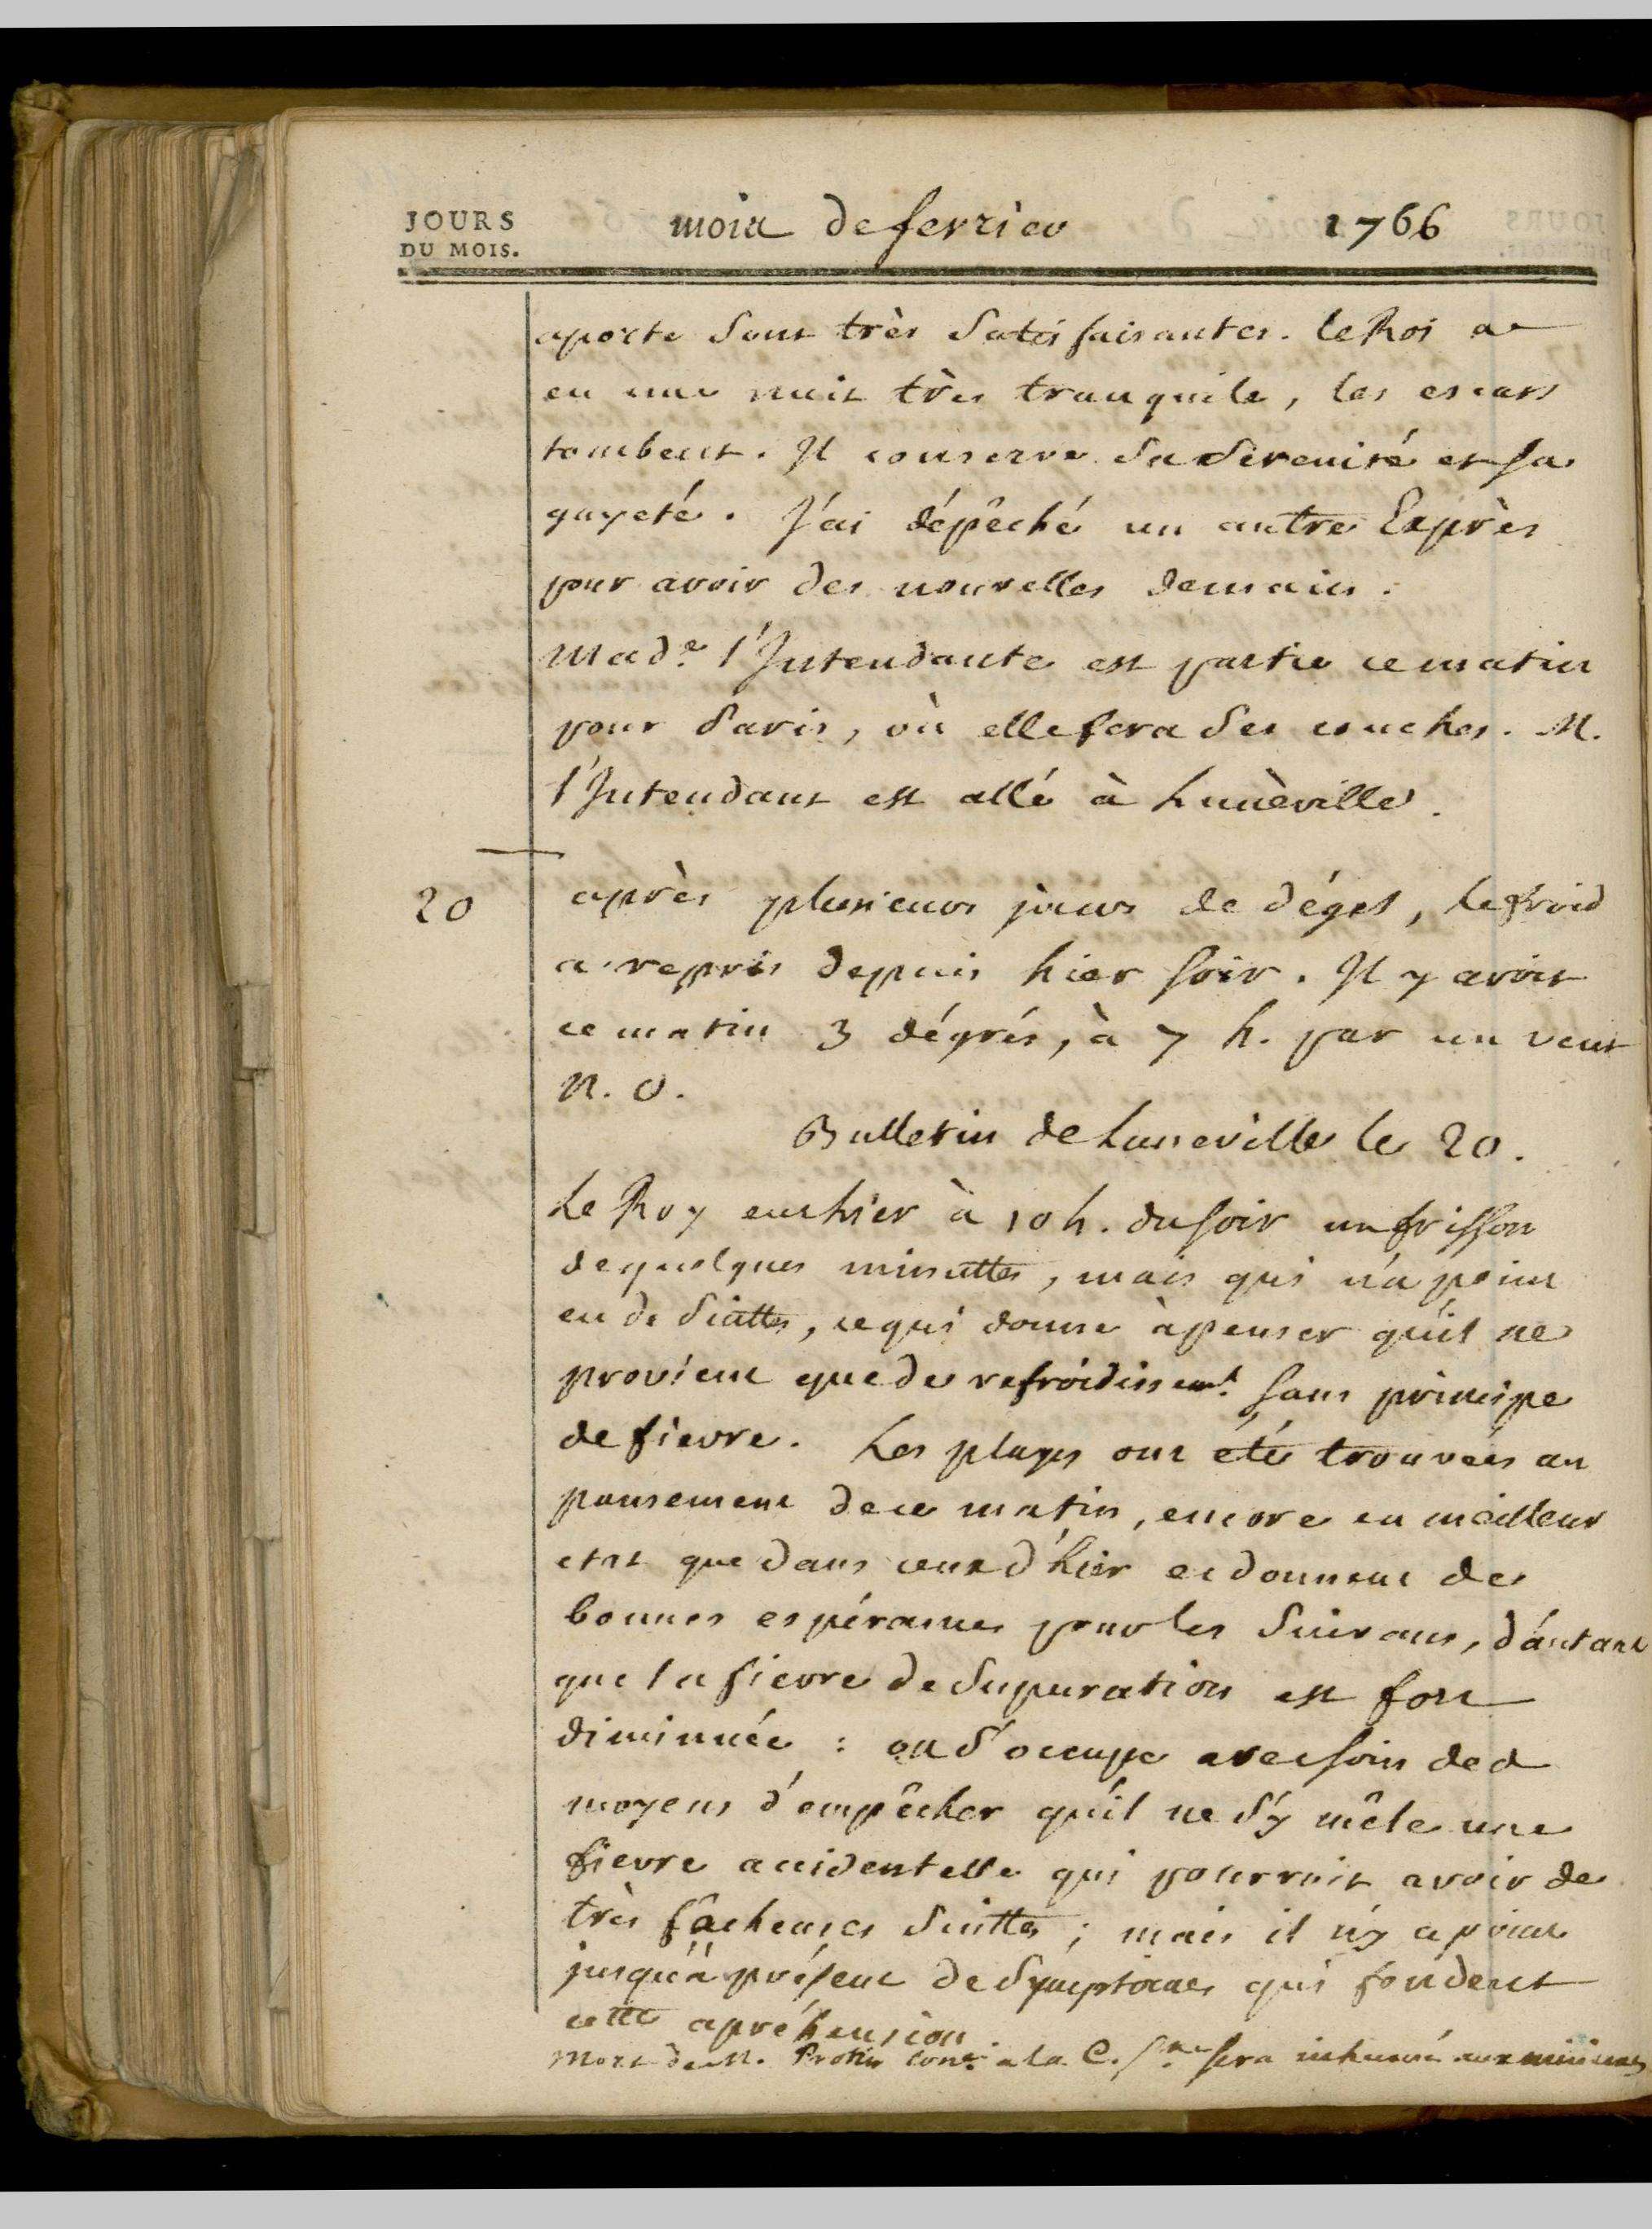 JOURS
DU MOIS.
mois de fevrier 1766
aporte sont très satisfaisantes. le Roi a
eu une nuit très tranquile, les escars
tombent. Il conserve sa serenité et sa
gayeté. J'ai dépêché un autre Exprès
pour avoir des nouvelles demain.
Made l'Intendante est partie ce matin
pour Paris, où elle fera ses couches. M.
l'Intendant est allé à Lunèville.
20 après plusieurs jours de dégel, le froid
a repris depuis hier soir. Il y avoit
ce matin 3 dégrés, à 7 h. par un vent
N. O.
Bulletin de Luneville le 20.
Le Roy eut hier à 10 h. du soir un frisson
de quelques minuttes, mais qui n'a point
eu de suittes, ce qui donne à penser qu'il ne
provient que de refroidissemt. sans principe
de fievre. Les playes ont été trouvées au
pansement de ce matin, encore en meilleur
etat que dans ceux d'hier et donnent de
bonnes espérances pour les suivans, d'autant
que la fievre de supuration est fort
diminuée : on s'occupe avec soin des
moyens d'empêcher qu'il ne s'y mêle une
fievre accidentelle qui pourroit avoir de
très fâcheuses suittes ; mais il n'y a point
jusqu'à présent de symptomes qui fondent
cette apréhension.
Mort de M. Protin conr. a la C. Sne sera inhumé aux minimes